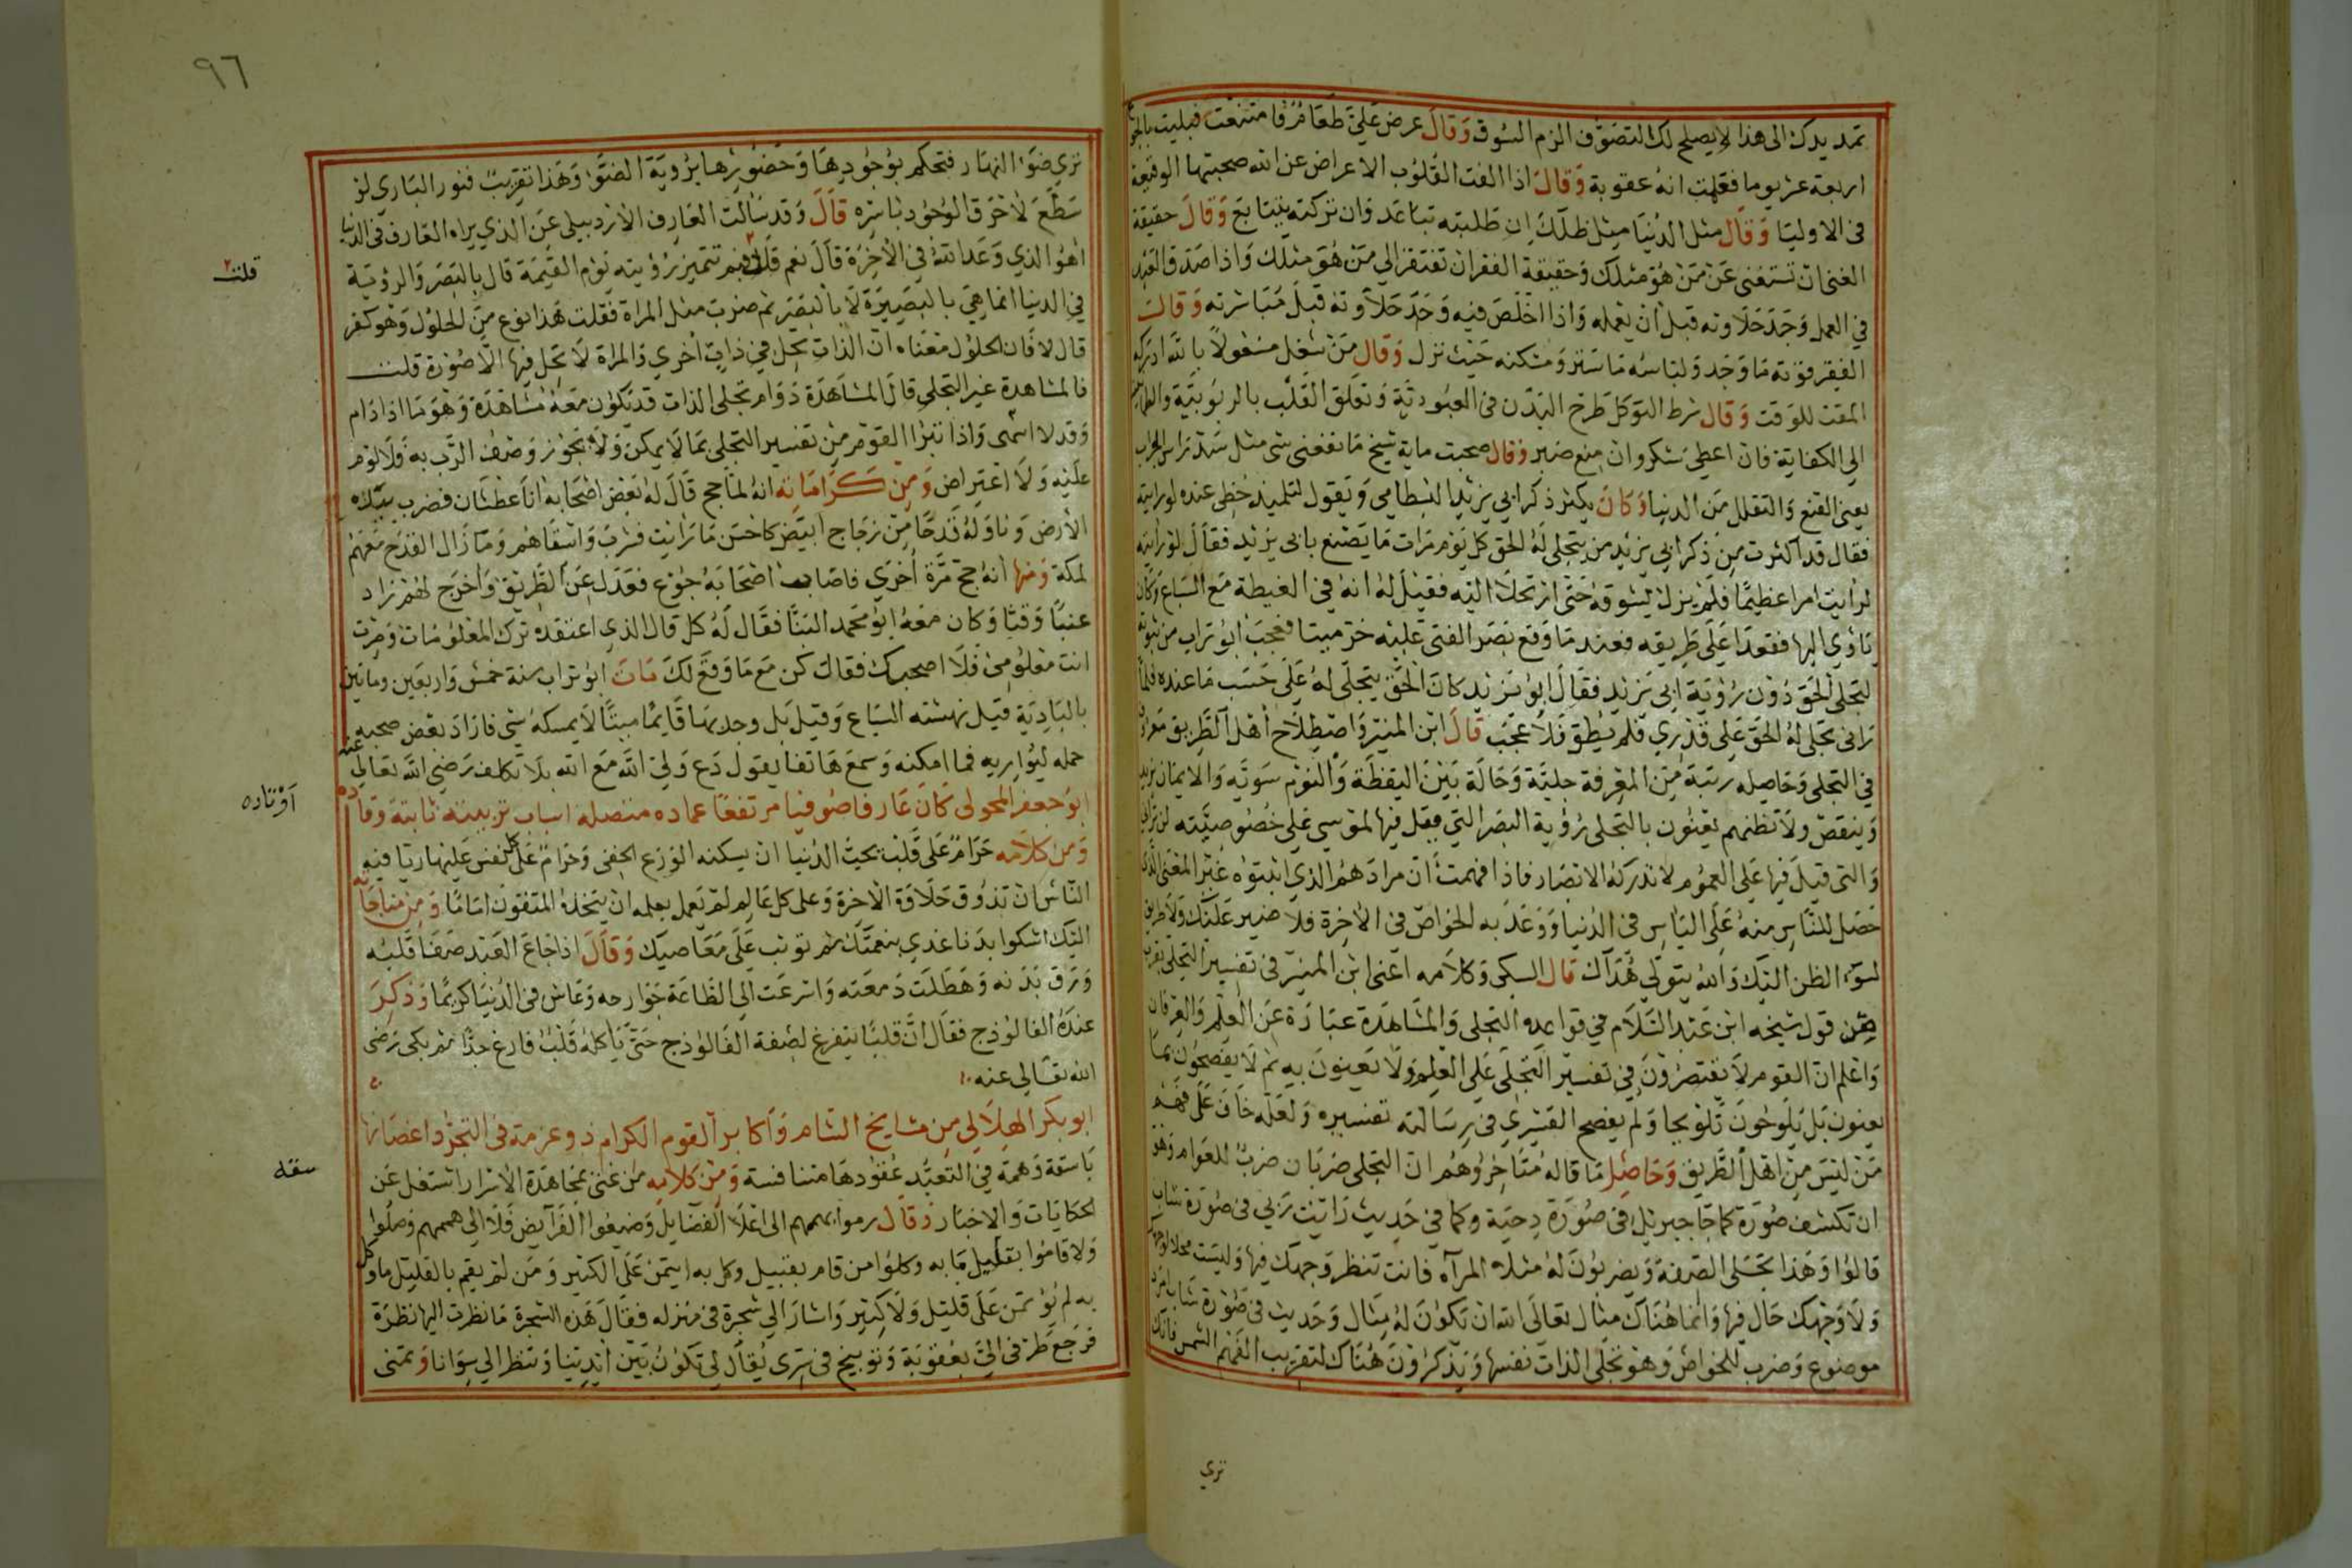 تمد يدك الى هذا لا يصلح لك التصوف الزم السوق وقال عرض علي طعام فامتنعت فبليت بالجوع
اربعة عشر يوما فعلمت انه عقوبة وقال اذا الفت القلوب الاعراض عن الله صحبتها الوقيعة
فى الاوليا وقال مثل الدنيا مثل ظلك ان طلبته تباعد وان تركته يتتابع وقال حقيقة
الغنى ان تستغنى عن من هو مثلك وحقيقة الفقر ان تفتقر الي من هو مثلك واذا صدق العبد
في العمل وجد حلاوته قبل ان يعمله واذا اخلص فيه وجد حلاوته قبل مباشرته وقال
الفقير قوته ما وجد ولباسه ما ستر ومسكنه حيث نزل وقال من شغل مشغولا بالله ادركه
المقت للوقت وقال شرط التوكل طرح البدن فى العبودية وتعلق القلب بالربوبية والطمانينة
الي الكفاية فان اعطي شكر وان منع صبر وقال صحبت ماية شيخ ما نفعني شى مثل شد راس الجراب
يعنى القنع والتقلل من الدنيا وكان يكثر ذكر ابي يزيد البسطامي ويقول لتلميذ حظى عنده لو رايته
فقال قد اكثرت من ذكر ابي يزيد من يتجلى له الحق كل يوم مرات ما يصنع بابى يزيد فقال لو رايته
لرايت امرا عظيما فلم يزل يشوقه حتى ارتحلا اليه فقيل له انه في الغيطة مع السباع وكان
ياوي اليها فقعدا على طريقه فعند ما وقع بصر الفتى عليه خر ميتا فعجب ابو تراب من ثبوته
لتجلى الحق دون رؤية ابى يزيد فقال ابو يزيد كان الحق يتجلى له على حسب ما عنده فلما
رانى تجلى له الحق على قدري فلم يطق فلا عجب قال ابن المنير واصطلاح اهل الطريق معروف
في التجلى وحاصله رتبة من المعرفة جلية وحالة بين اليقظة والنوم سوية والايمان يزيد
وينقص ولا تظنهم يعنون بالتجلى رؤية البصر التي قيل فيها لموسى على خصوصيته لن تراني
والتى قيل فيها على العموم لا تدركه الابصار فاذا فهمت ان مرادهم الذي اثبتوه غير المعنى الذى
حصل للناس منه على الياس فى الدنيا ووعد به الخواص فى الاخرة فلا ضير عليك ولا طريق
لسوء الظن اليك والله يتولى هداك قال السبكى وكلامه اعنى ابن المنير فى تفسير التجلى يقرب
من قول شيخه ابن عبد السلام في قواعده التجلى والمشاهدة عبارة عن العلم والعرفان
واعلم ان القوم لا يقتصرون في تفسير التجلى على العلم ولا يعنون به ثم لا يفصحون بما
يعنون بل يلوحون تلويحا ولم يفصح القشيرى فى رسالته تفسيره ولعله خاف على فهم
من ليس من اهل الطريق وحاصل ما قاله متاخروهم ان التجلى ضربان ضرب للعوام وهو
ان تكشف صورة كما جا جبريل فى صورة دحية وكما في حديث رايت ربي فى صورة شاب
قالوا وهذا تجلى الصفة ويضربون له مثلا المرآة فانت تنظر وجهك فيها وليست محلا لوجهك
ولا وجهك حال فيها وانما هناك مثال تعالى الله ان تكون له مثال وحديث فى صورة شاب امرد
موضوع وضرب للخواص وهو تجلى الذات نفسها ويذكرون هناك لتقريب الفهم الشمس فانك
تري
٩٦
تري ضوء النهار فتحكم بوجودها وحضورها برؤية الضو وهذا تقريب فنور الباري لو
سطع لاحرق الوجود باسره قال وقد سالت العارف الاردبيلى عن الذي يراه العارف فى الدنيا
اهو الذي وعد الله فى الاخرة قال نعم قلت فبم تتميز رؤيته يوم القيمة قال بالبصر والرؤية
في الدنيا انما هى بالبصيرة لا بالبصر ثم ضرب مثل المراة فقلت هذا نوع من الحلول وهو كفر
قال لا فان الحلول معناه ان الذات تحل في ذات اخرى والمراة لا تحل فيها الا صورة قلت
فالمشاهدة غير التجلى قال المشاهدة دوام تجلى الذات قد تكون معه مشاهدة وهو ما اذا دام
وقد لا انتهى واذا تبرا القوم من تفسير التجلى بما لا يمكن ولا يجوز وصف الرب به فلا لوم
عليه ولا اعتراض ومن كراماته انه لما حج قال له بعض اصحابه انا عطشان فضرب بيده
الارض وناوله قدحا من زجاج ابيض كاحسن ما رايت فشرب واسقاهم وما زال القدح معهم
لمكة ومنها انه حج مرة اخرى فاصاب اصحابه جوع فعدل عن الطريق واخرج لهم زاد
عنبا وقثا وكان معه ابو محمد البنا فقال له كل قال الذي اعتقده ترك المعلومات وصرت
انت معلومى فلا اصحبك فقال كن مع ما وقع لك مات ابو تراب سنة خمس واربعين ومايتين
بالبادية قيل نهشته السباع وقيل بل وجد بها قايما ميتا لا يمسكه شى فاراد بعض صحبه
حمله ليواريه فما امكنه وسمع هاتفا يقول دع ولى الله مع الله بلا تكلف رضي الله تعالى عنه
ابو جعفر المحولى كان عارفا صوفيا مرتفعا عماده متصله اسباب تربيته ثابتة وقاده
ومن كلامه حرام على قلب يحب الدنيا ان يسكنه الورع الخفى وحرام على كل نفس عليها ريا فيه
الناس ان تذوق حلاوة الاخرة وعلى كل عالم لم يعمل بعلمه ان يتخذه المتقون اماما ومن مناجاته
اليك اشكوا بدنا غذي بنعمتك ثم توثب على معاصيك وقال اذا جاع العبد صفا قلبه
ورق بدنه وهطلت دمعته واسرعت الى الطاعة جوارحه وعاش فى الدنيا كريما وذكر
عنده الفالوذج فقال ان قلبا يتفرغ لصفة الفالوذج حتى ياكله قلب فارغ جدا ثم بكى رضى
الله تعالى عنه
ابو بكر الهلالي من مشايخ الشام واكابر القوم الكرام ذو عزمة فى التجرد اغصانها
باسقة وهمة في التعبد عقودها متنافسة ومن كلامه من غنى بمجاهدة الاسرار اشتغل عن
الحكايات والاخبار وقال رموا بهممهم الى اعلا الفضايل وضيعوا الفرآيض فلا الى هممهم وصلوا
ولا قاموا بقليل ما به وكلوا من قام بقبيل وكل به ايتمن على الكثير ومن لم يقم بالقليل ما وكل
به لم يؤتمن على قليل ولا كثير واشار الي شجرة فى منزله فقال هذه الشجرة ما نظرت اليها نظرة
فرجع طرفى الى بعقوبة وتوبيخ فى سرى يقال لي تكون بين ايدينا وتنظر الي سوانا وتمنى
قلت
اوتاده
سقه